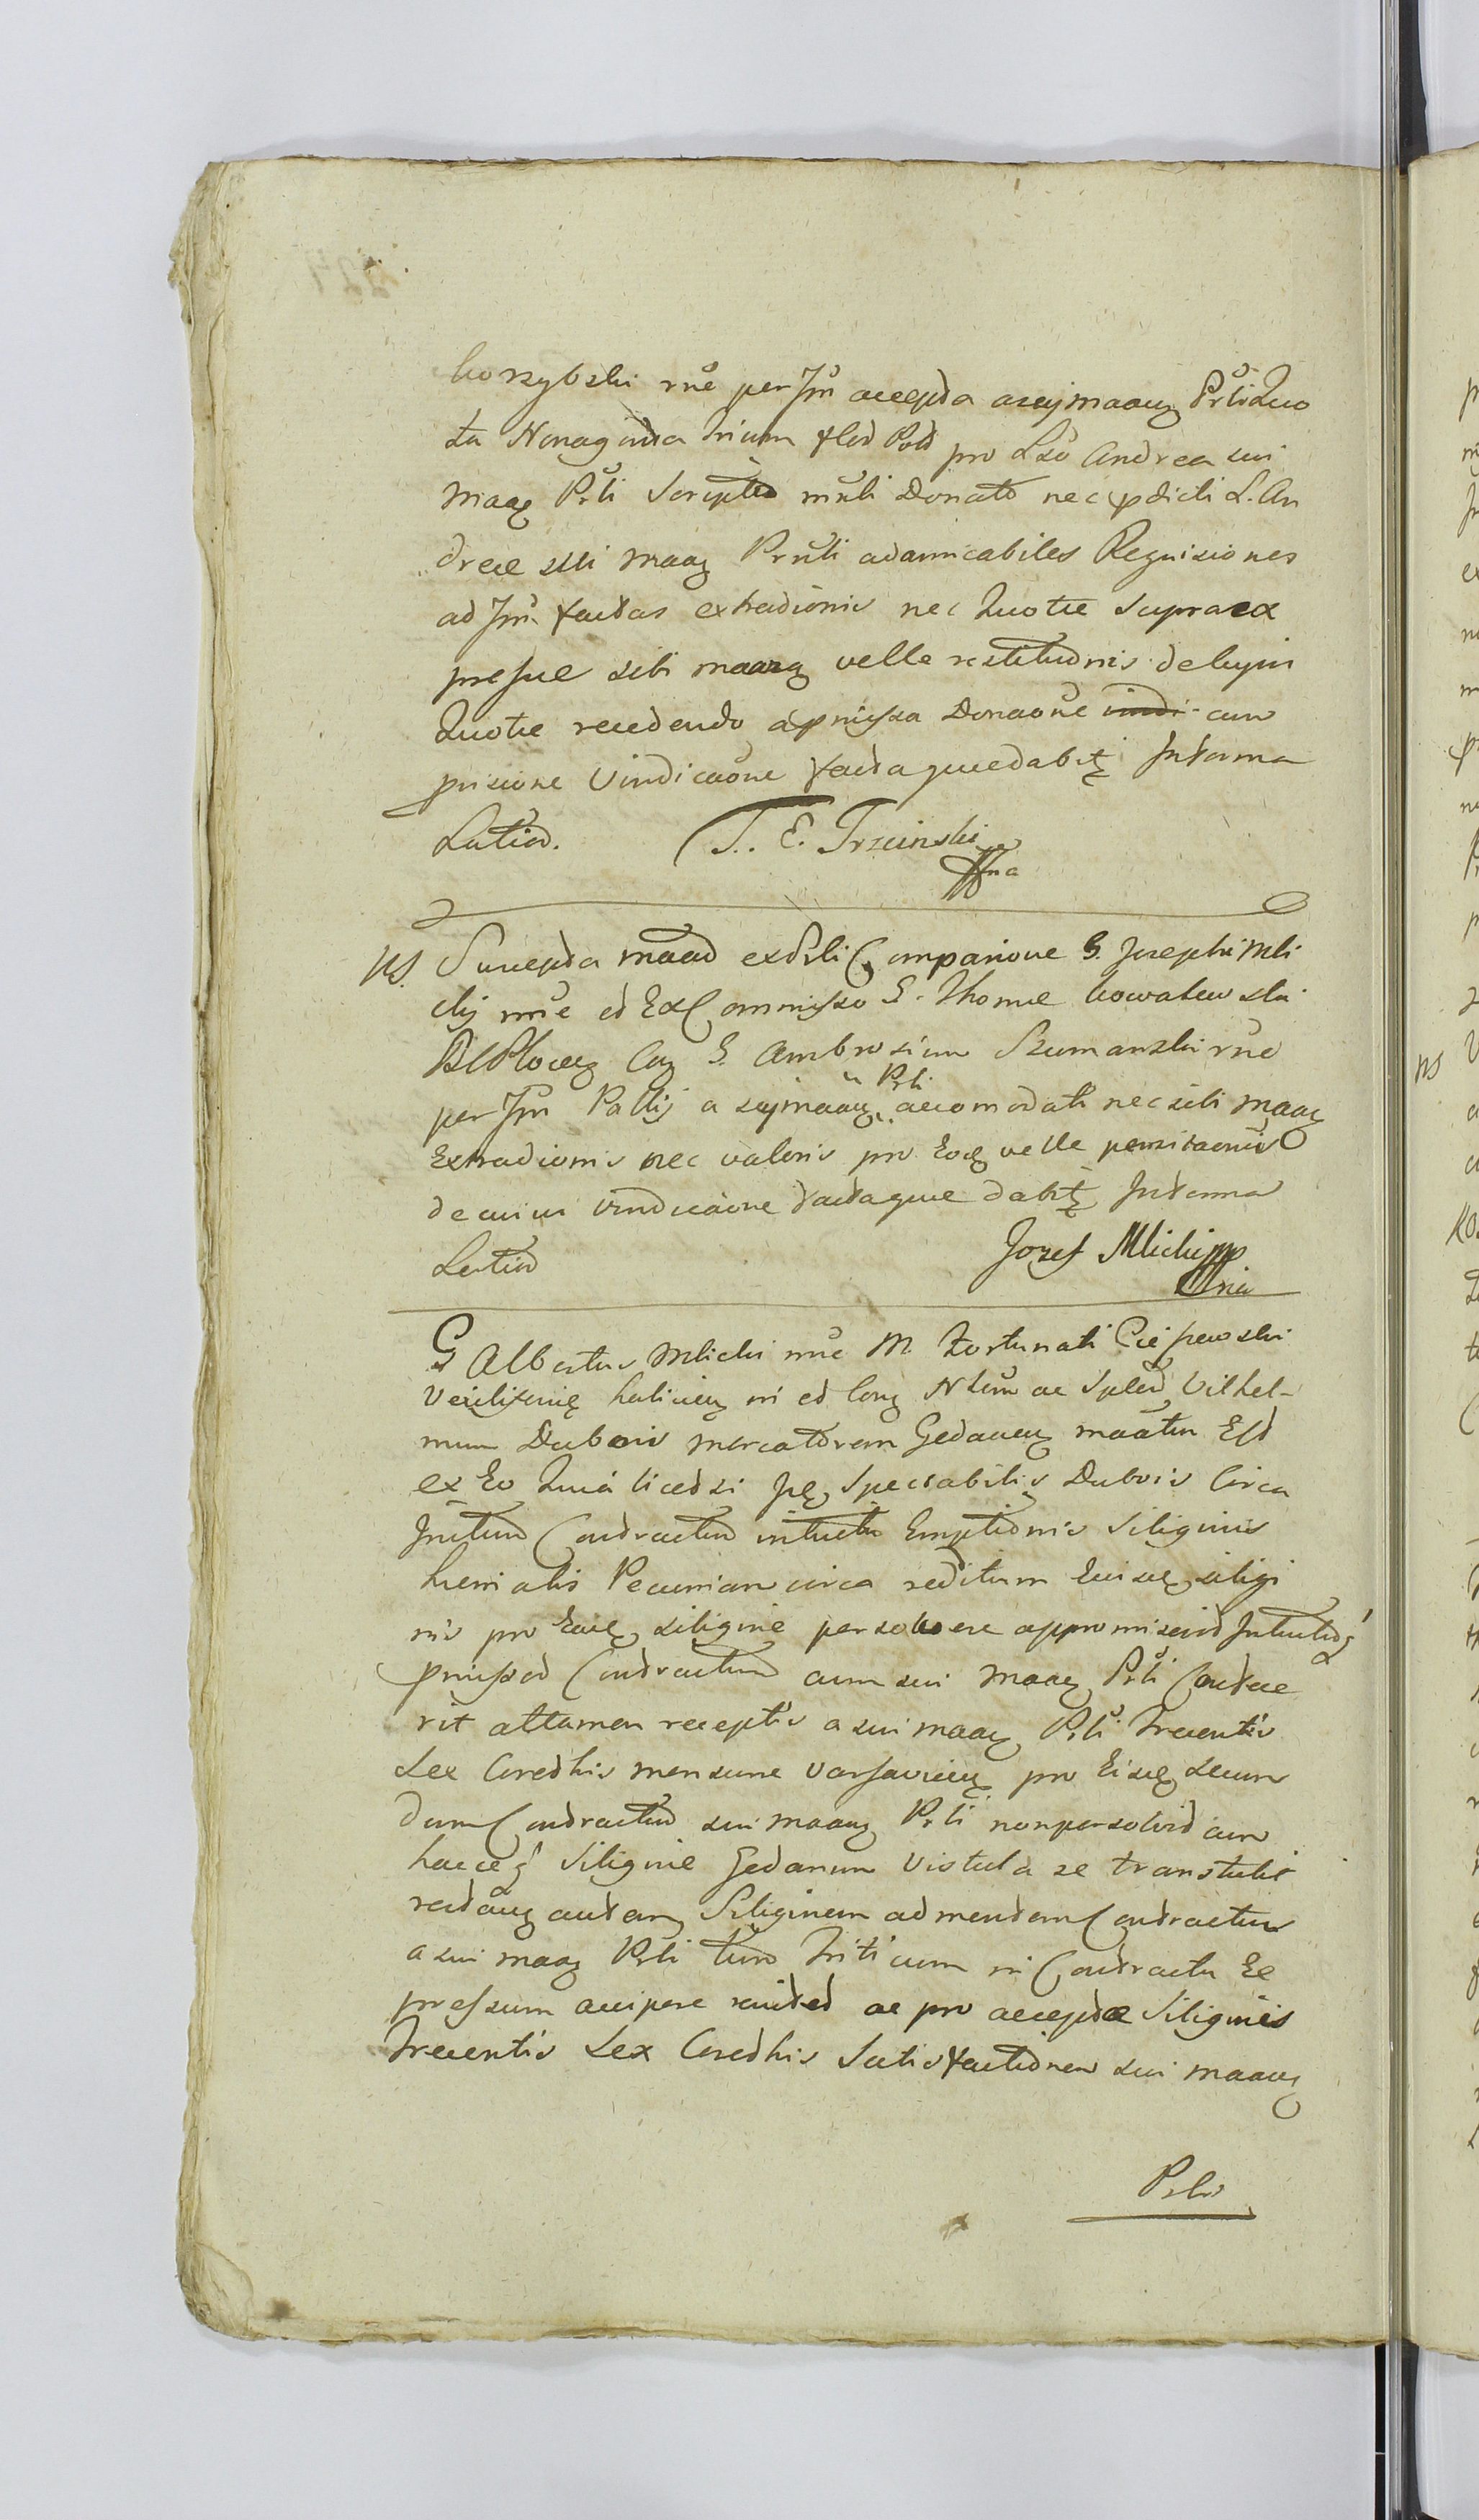 korzybski rne per Jm accepta a suy maaeq Prli Quo
ta Nonaginta trium flor Pold pro Lso Andrea sui
maaeq Prli Scripto mnli Donato nec pdicti L. An
dreae sui maaeq Prnli ad amicabiles Requisiones
ad Jm factas extradionis nec Quotae supra ex
pressae sibi maaeq velle restitutionis de cujus
Quotae recedendo a pmissa Donaone cum
pnsione Vindicaone facta quae dabitz In forma
Latiori. T. E. Trzcinski
mia
NS. Suscepta maaõ ex Prli Comparione G. Josephi Mli
ckij rne et ex Commisso G. Thomae kowalewski
B C Ploceq Coq G. Ambrosium Szumanski rne
Prli
per Jm Pallij a suy maaeq accomodati nec sibi maaeq
Extradionis nec valoris pro Eoq velle pensitaonis
de cujus vindicaone factaque dabitz In forma
Latiori Jozef Mlicki mp
mia
G Albertus Mlicki rne M. Fortunati Cieszewski
Vexiliferiq haliceq in et Coeq Nlem ac Spleд Vilhel-
mum Dubois mercatorem Gedaneq maatus Est
ex Eo Quia licet si pq Spectabilis Dubois Circa
Initum Contractum intuitu Emptionis Siliginis
hiemalis Pecuniam circa reditum Euiseq siligi
nis pro Eaeq siligine persolvere appromiserit Intuituq
pmissoq Contractum cum sui maaeq Prli Confece
rit attamen receptis a sui maaeq Prli Trecentis
Sex Coretkis mensurae Varsavieeq pro Eiseq Secun
dum Contractum sui maaeq Prli non persolvit cum
hacceq Siligine Gedanum Vistula se transtulit
restaneq autem Siliginem ad mentem Contractus
a sui maaeq Prli tum Triticum in Contractu Ex
pressum accipere renitet ac pro accepta Siliginis
Trecentis Sex Coretkis Satisfactionem sui maaeq
Prli